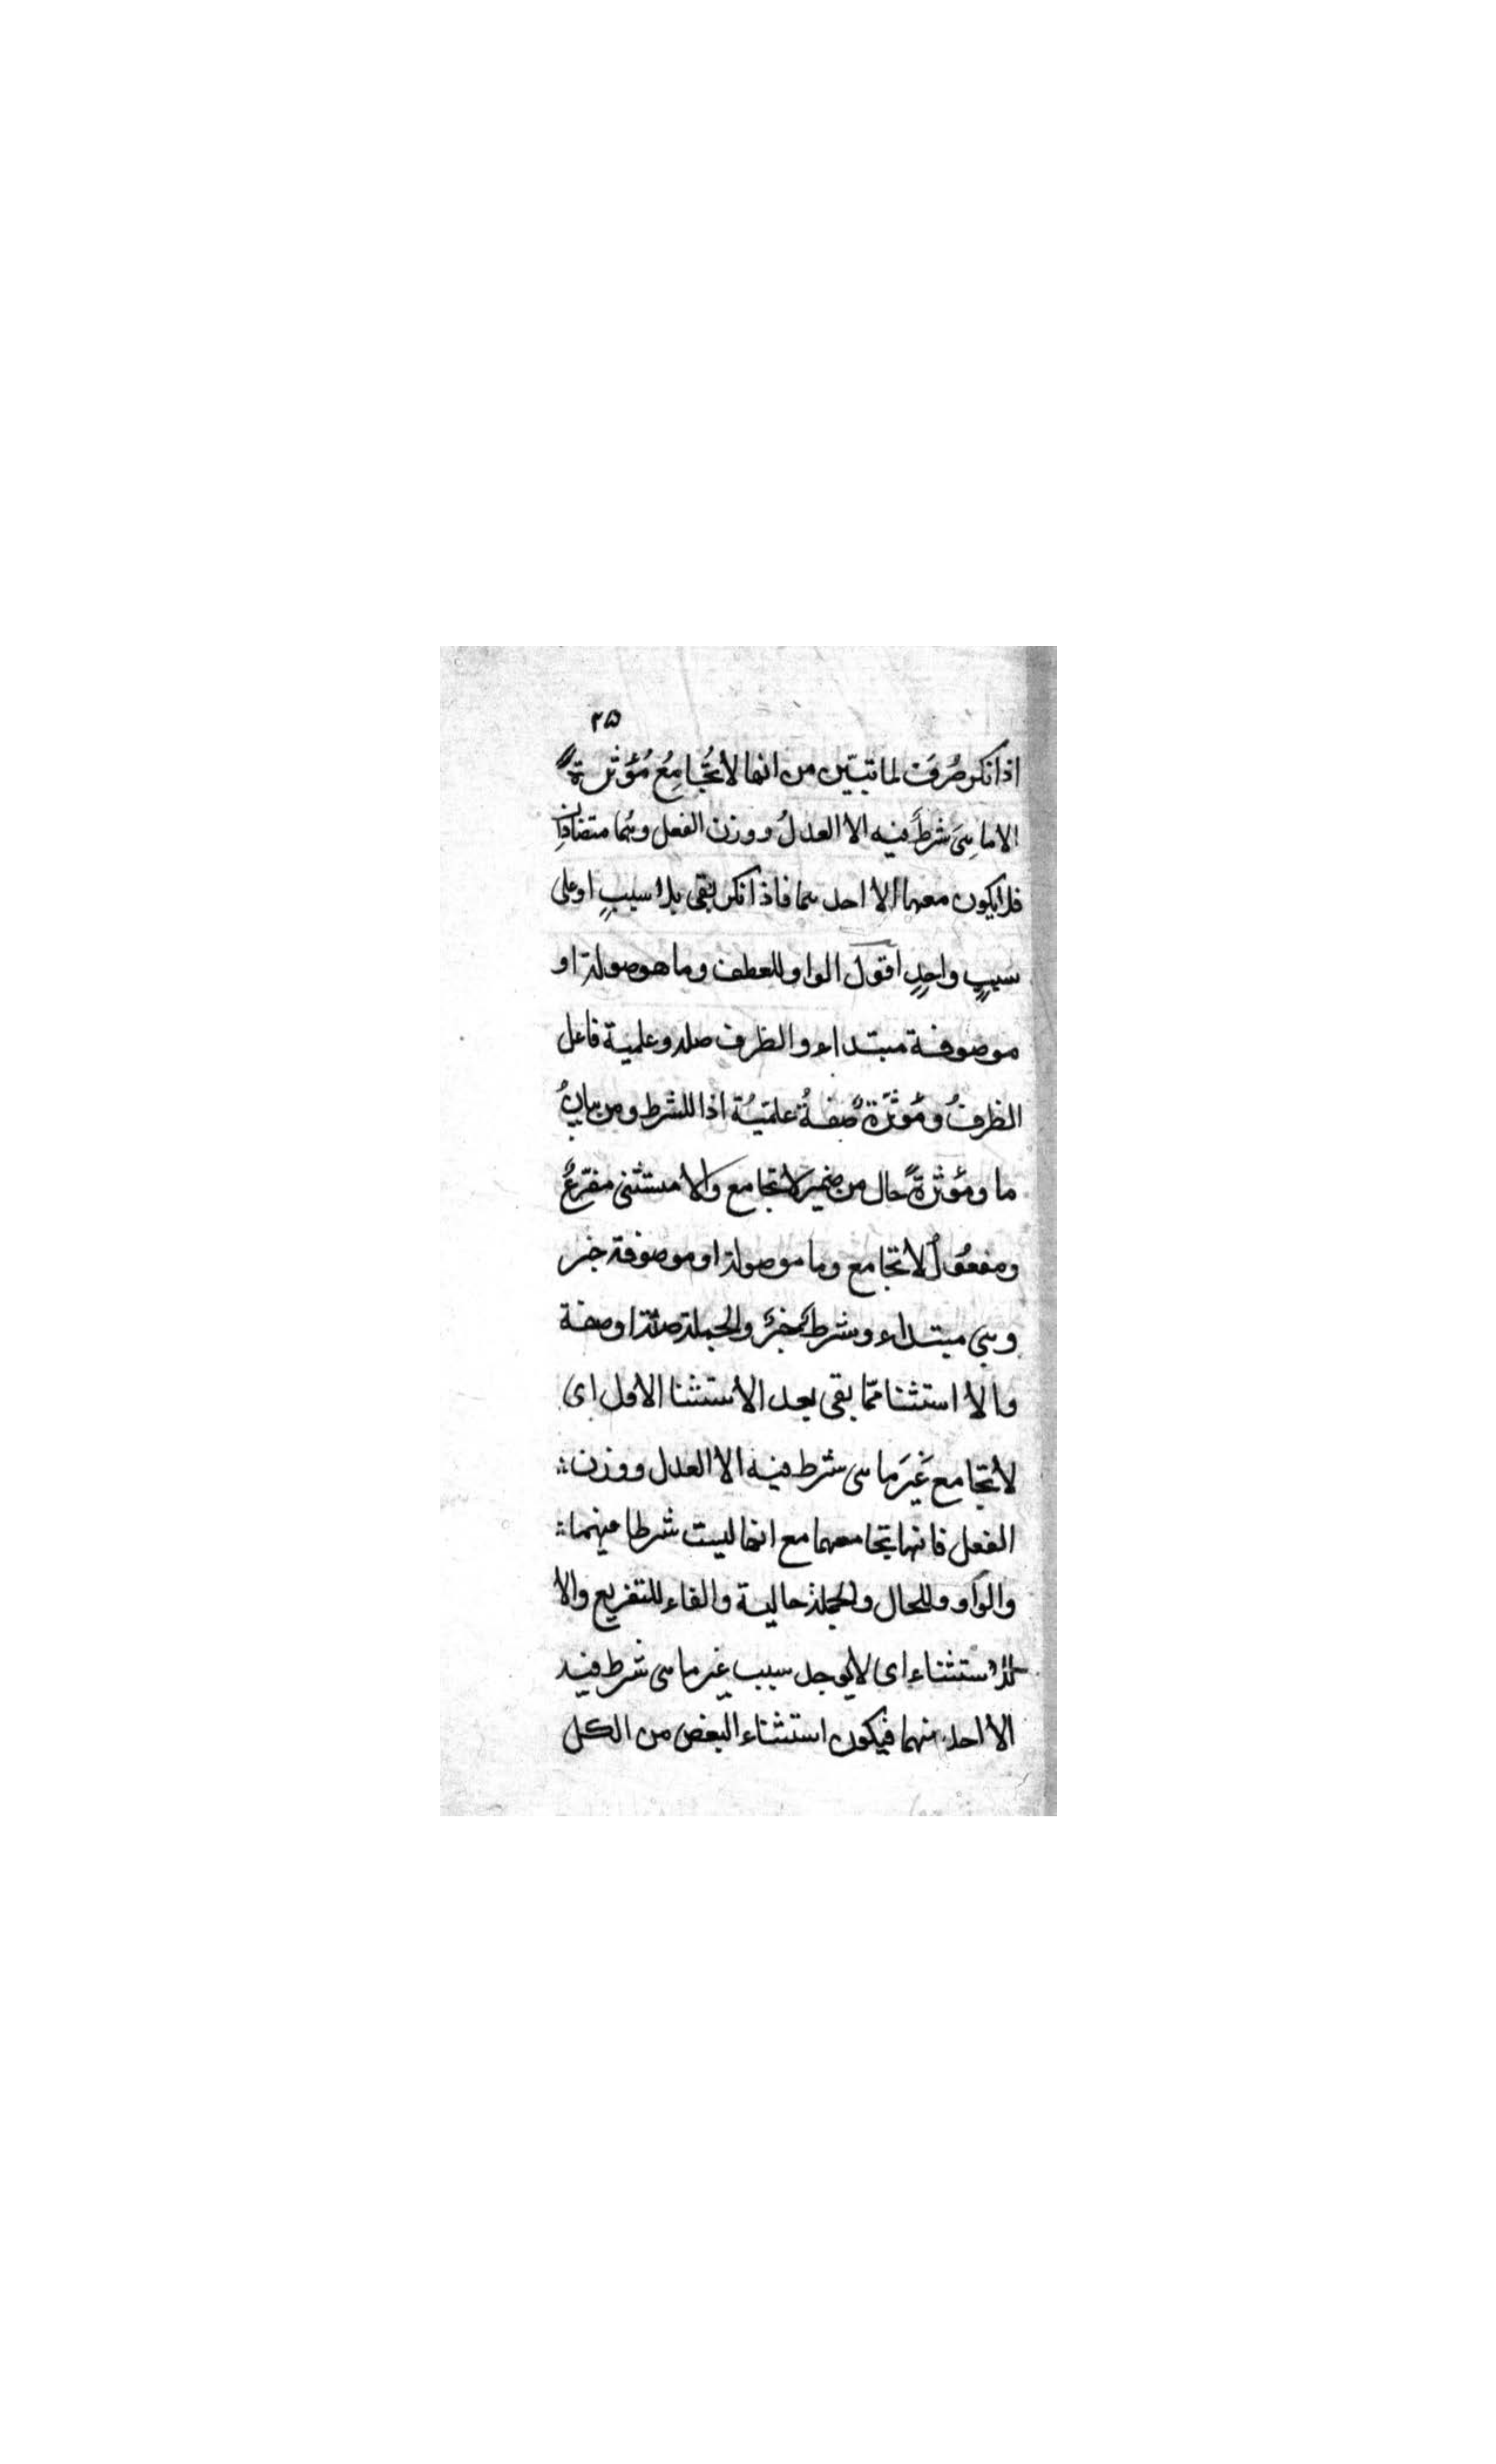 ٢٥
اذا نكر صُرفَ لما تبيّن من انها لا تُجَامِعُ مُؤَثرةً
الا ما هِىَ شرطً فيه الا العدلُ ووزن الفعل وهُما متضادانِ
فلا يكون معهما الا احدهما فاذا نكر بقى بلا سببٍ او على
سببٍ واحدٍ اقول الواو للعطف وما موصولة او
موصوفة مبتداء والظرف صلة وعلمية فاعل
الظرفُ ومُوثّرةً صفةُ علميّةُ اذا للشرط ومن بيانُ
ما ومُوثرةً حال من ضمير لا تجامع والا مستثنى مفرّغُ
ومفعُولُ لا تجامع وما موصولة او موصوفة خبر
وهى مبتداء وشرط خبرُ والجملة صلة او صفة
والا استثنا ممّا بقى بعد الاستثنا الاول اى
لا تجامع غَيرَ ما هى شرط فيه الا العدل ووزن
الفعل فانها تجامعهما مع انها ليست شرطا فيهما
والواو وللحال والجملة حالية والفاء للتفريع والا
للاستثناء اى لا يوجد سبب غير ما هى شرط فيه
الا احد منهما فيكون استثناء البعض من الكل